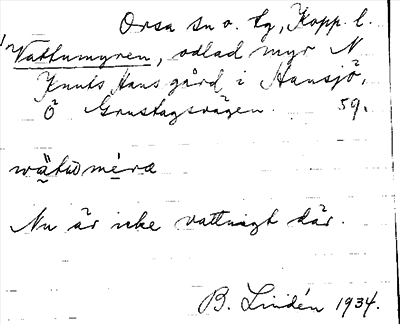 Orsa sn o. tg, Kopp. l.
Vattumyren, odlad myr N
Knuts Hans gård i Hansjö,
Ö Grustagsvägen. 59.
wätuméra
Nu är icke vattnigt där.
B. Lindén 1934.